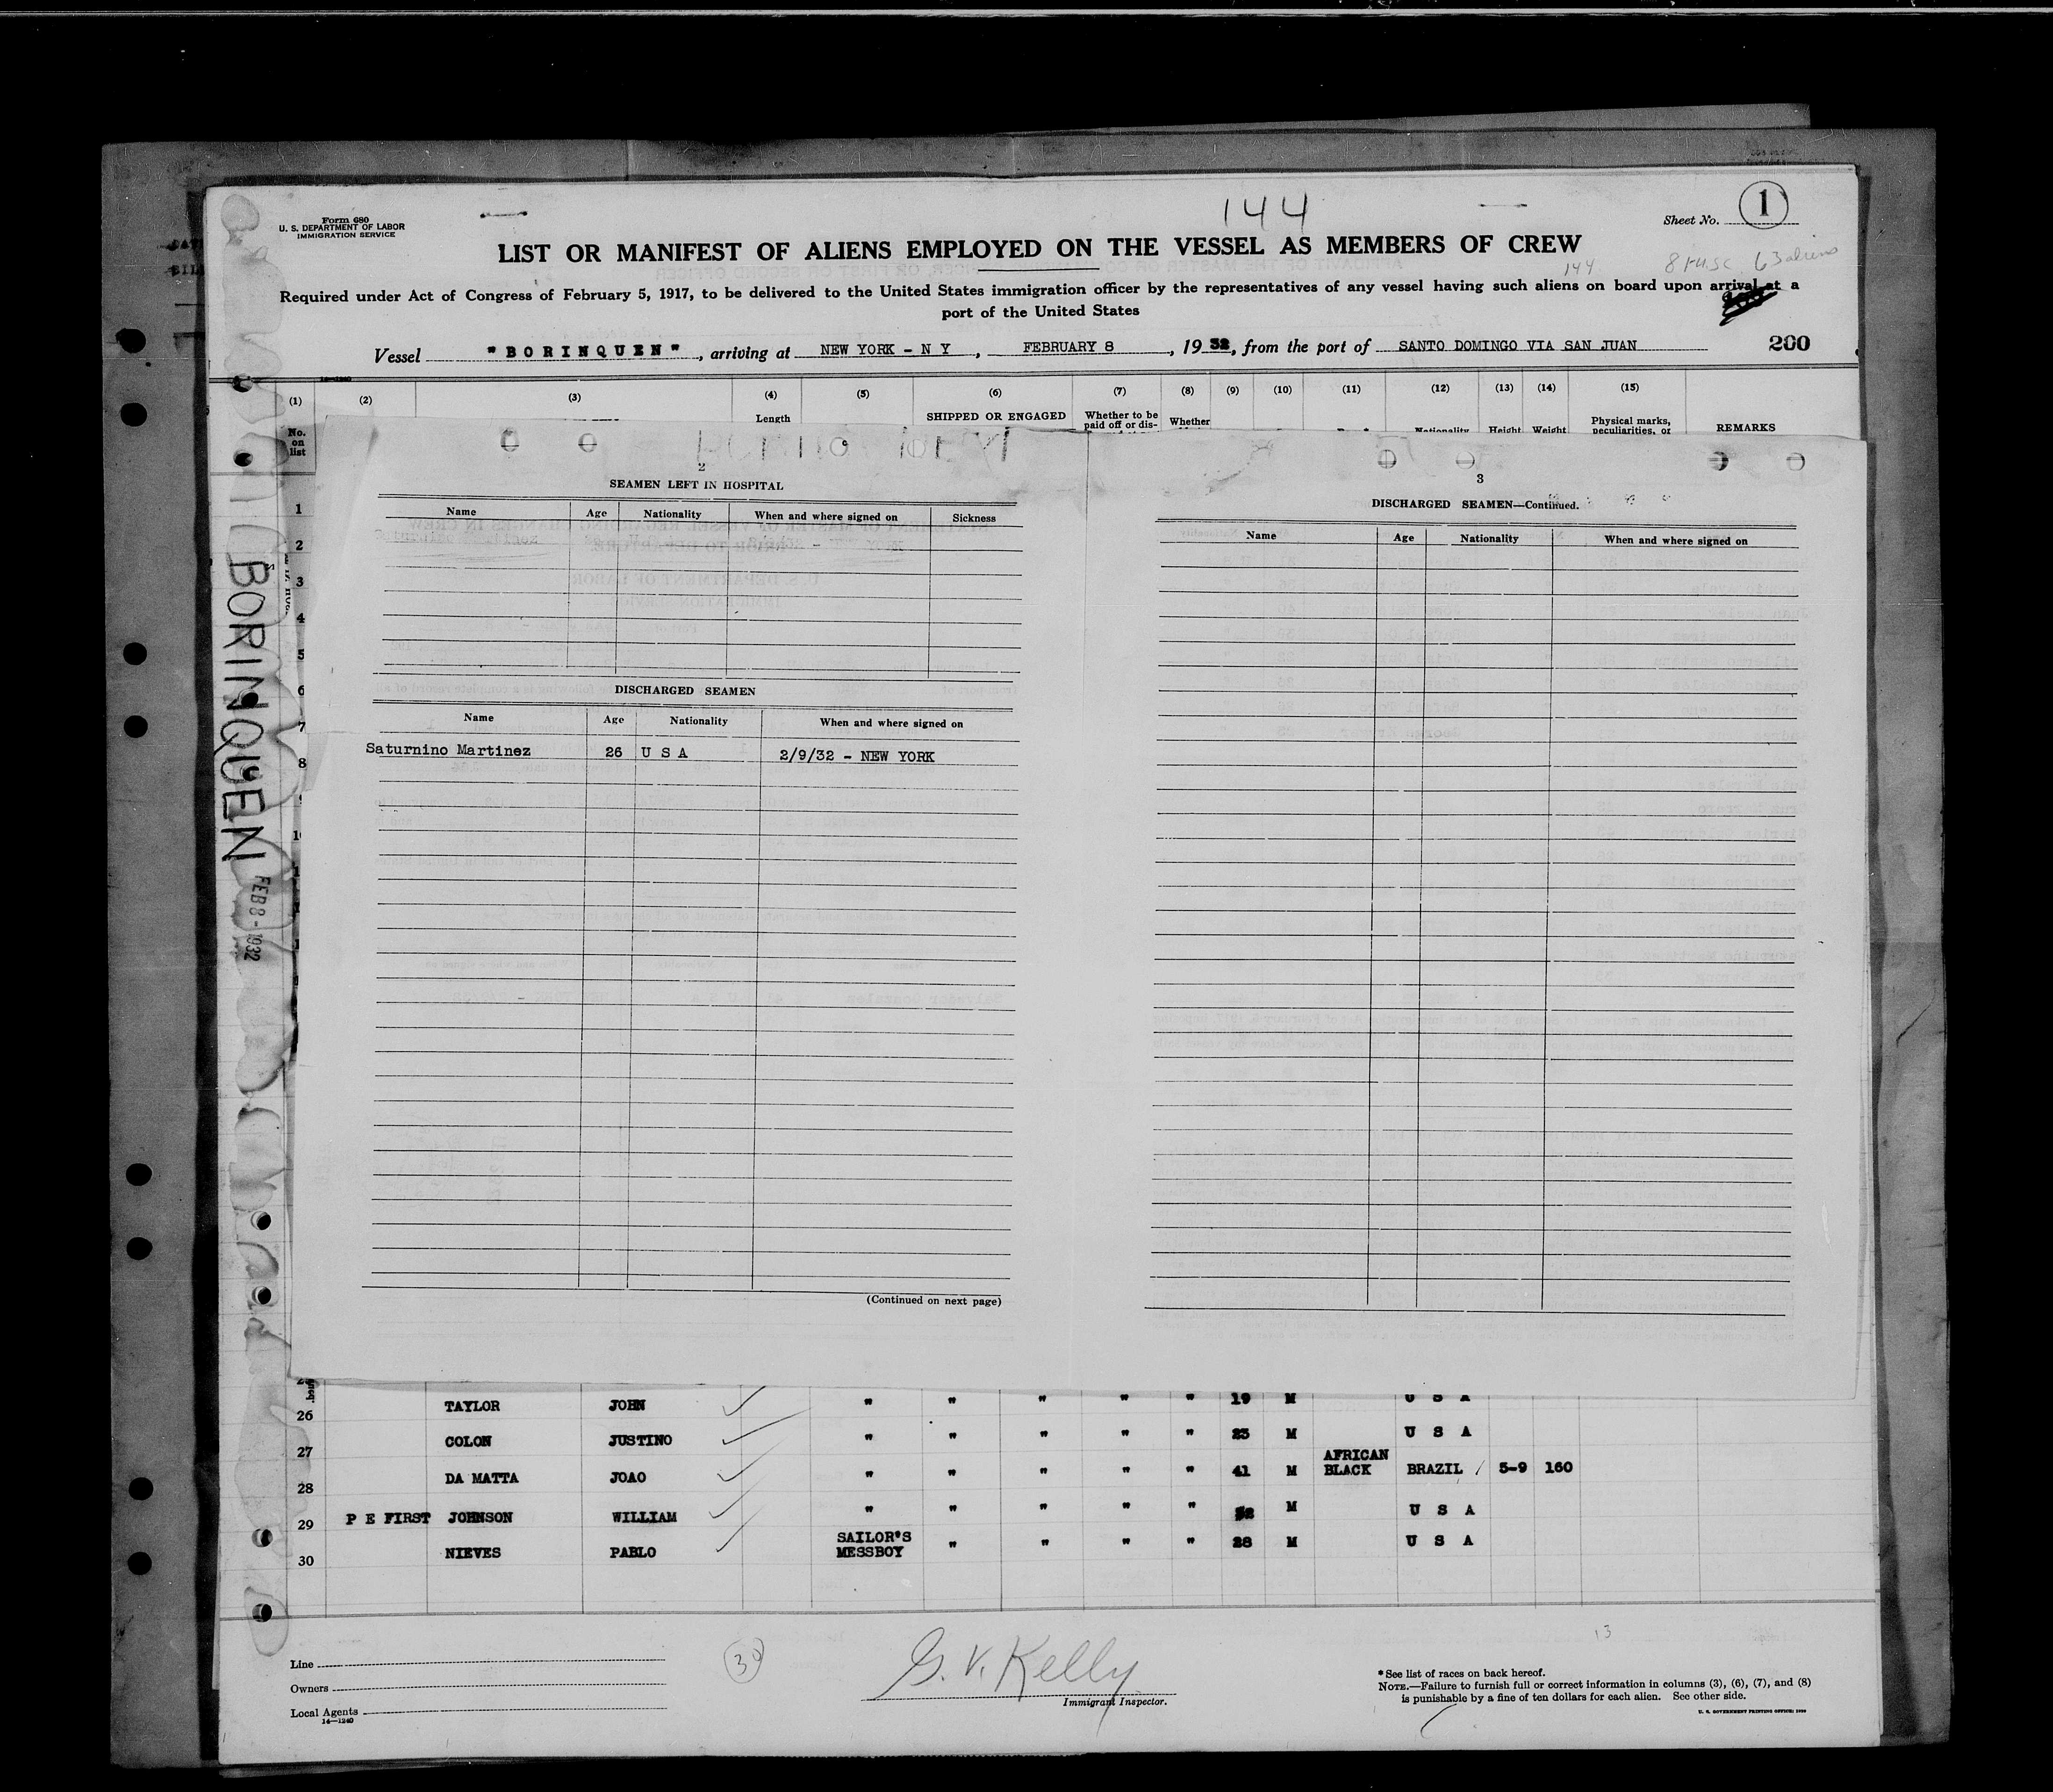 Form 680
U. S. DEPARTMENT OF LABOR
IMMIGRATION SERVICE
144
Sheet No. 1
LIST OR MANIFEST OF ALIENS EMPLOYED ON THE VESSEL AS MEMBERS OF CREW
144
63 aliens
Required under Act of Congress of February 5, 1917, to be delivered to the United States immigration officer by the representatives of any vessel having such aliens on board upon arrival at a
port of the United States
Vessel "BORINQUEN", arriving at NEW YORK - N Y, FEBRUARY 8, 1932, from the port of SANTO DOMINGO VIA SAN JUAN
200
14-1240
(1) (2) (3) (4) (5) (6) (7) (8) (9) (10) (11) (12) (13) (14) (15)
No. on list
Length
SHIPPED OR ENGAGED
Whether to be paid off or dis-
Whether
Nationality
Height
Weight
Physical marks, peculiarities, or
REMARKS
BORINQUEN
FEB 8 - 1932
1
2
3
4
5
6
7
8
2
SEAMEN LEFT IN HOSPITAL
Name Age Nationality When and where signed on Sickness
DISCHARGED SEAMEN
Name Age Nationality When and where signed on
Saturnino Martinez 26 U S A 2/9/32 - NEW YORK
(Continued on next page)
3
DISCHARGED SEAMEN—Continued.
Name Age Nationality When and where signed on
26 TAYLOR JOHN " " " " " 19 M U S A
27 COLON JUSTINO " " " " " 23 M U S A
28 DA MATTA JOAO " " " " " 41 M AFRICAN BLACK BRAZIL 5-9 160
29 P E FIRST JOHNSON WILLIAM " " " " " M U S A
30 NIEVES PABLO SAILOR'S MESSBOY " " " " 28 M U S A
Line
Owners
Local Agents
14—1240
30
G. V. Kelly
Immigrant Inspector.
13
* See list of races on back hereof.
NOTE.—Failure to furnish full or correct information in columns (3), (6), (7), and (8)
is punishable by a fine of ten dollars for each alien. See other side.
U. S. GOVERNMENT PRINTING OFFICE: 1930